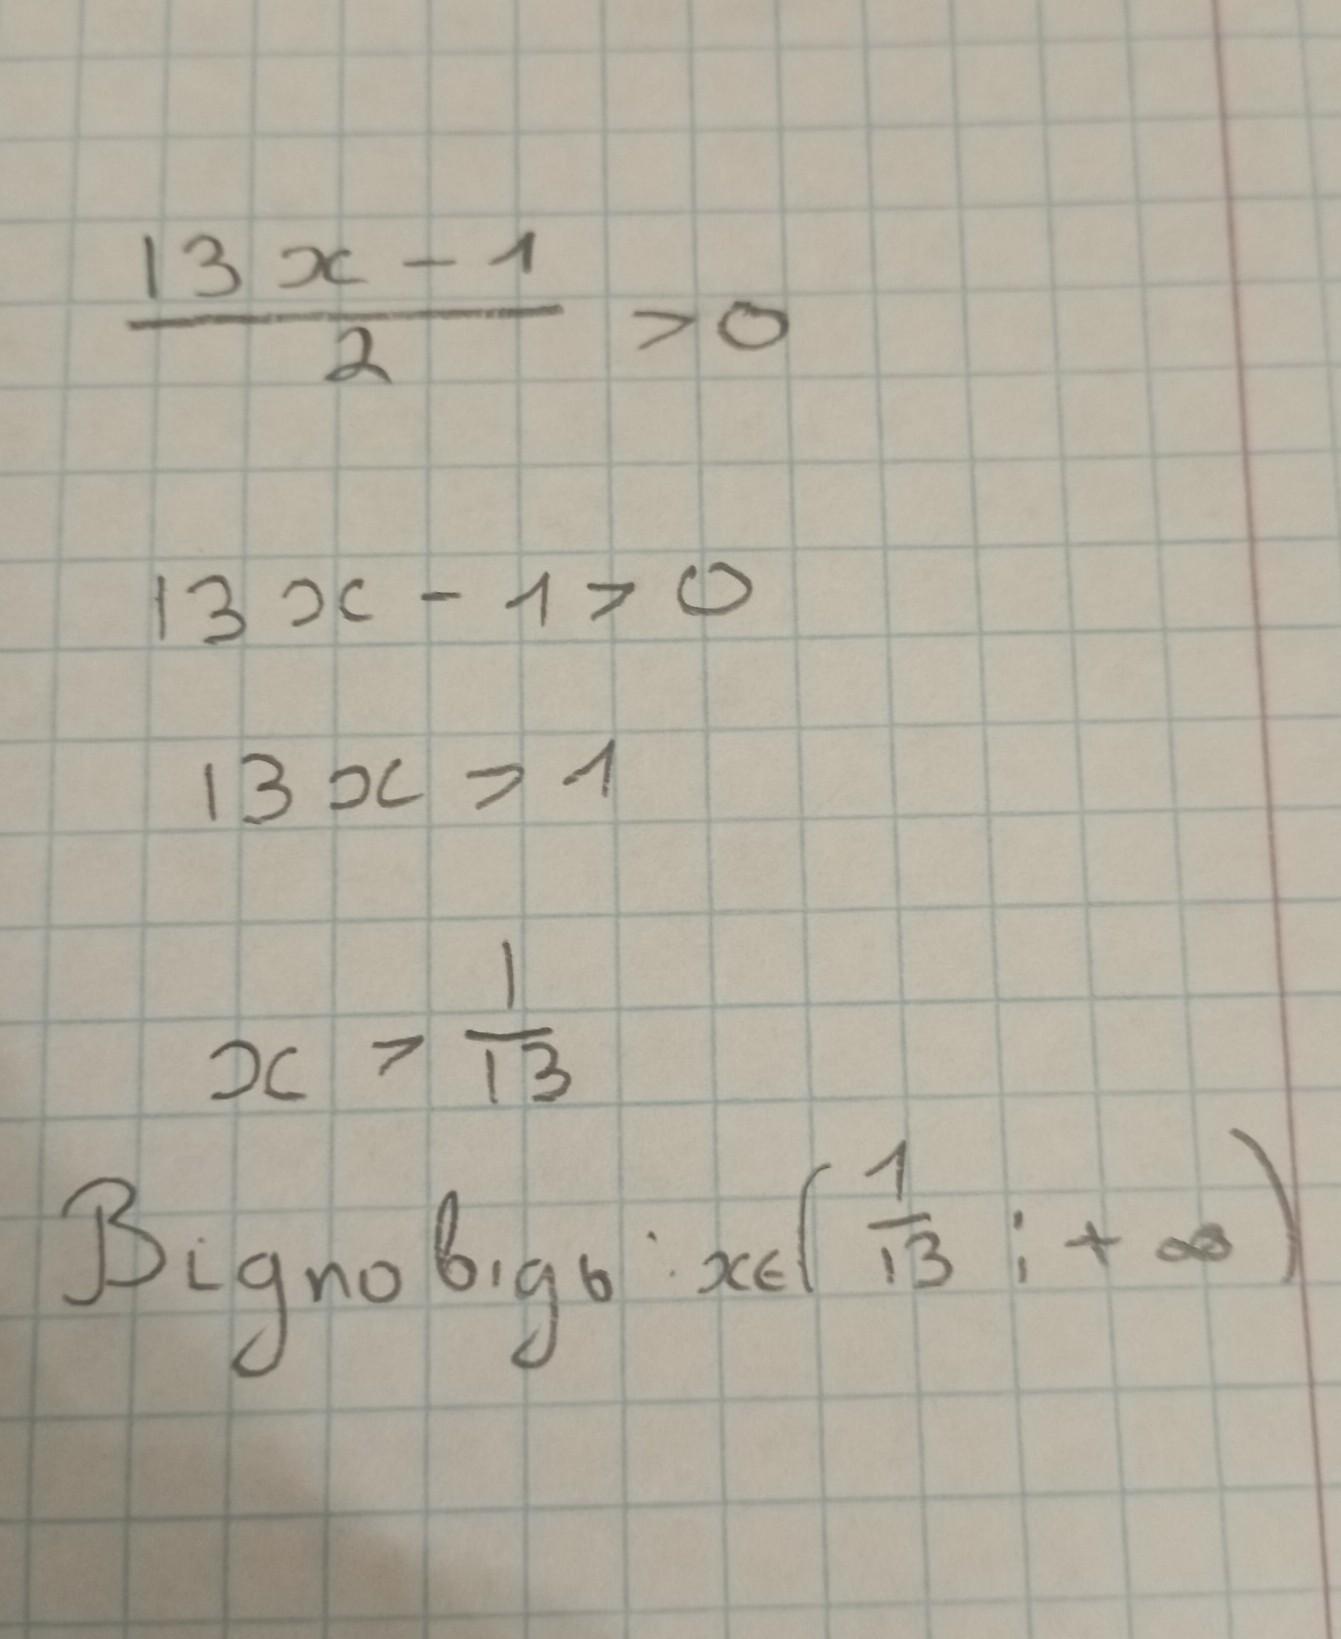 13x - 1
―――― > 0
2
13x - 1 > 0
13x > 1
x > 1/13
Відповідь: x∈(1/13 ; + ∞)